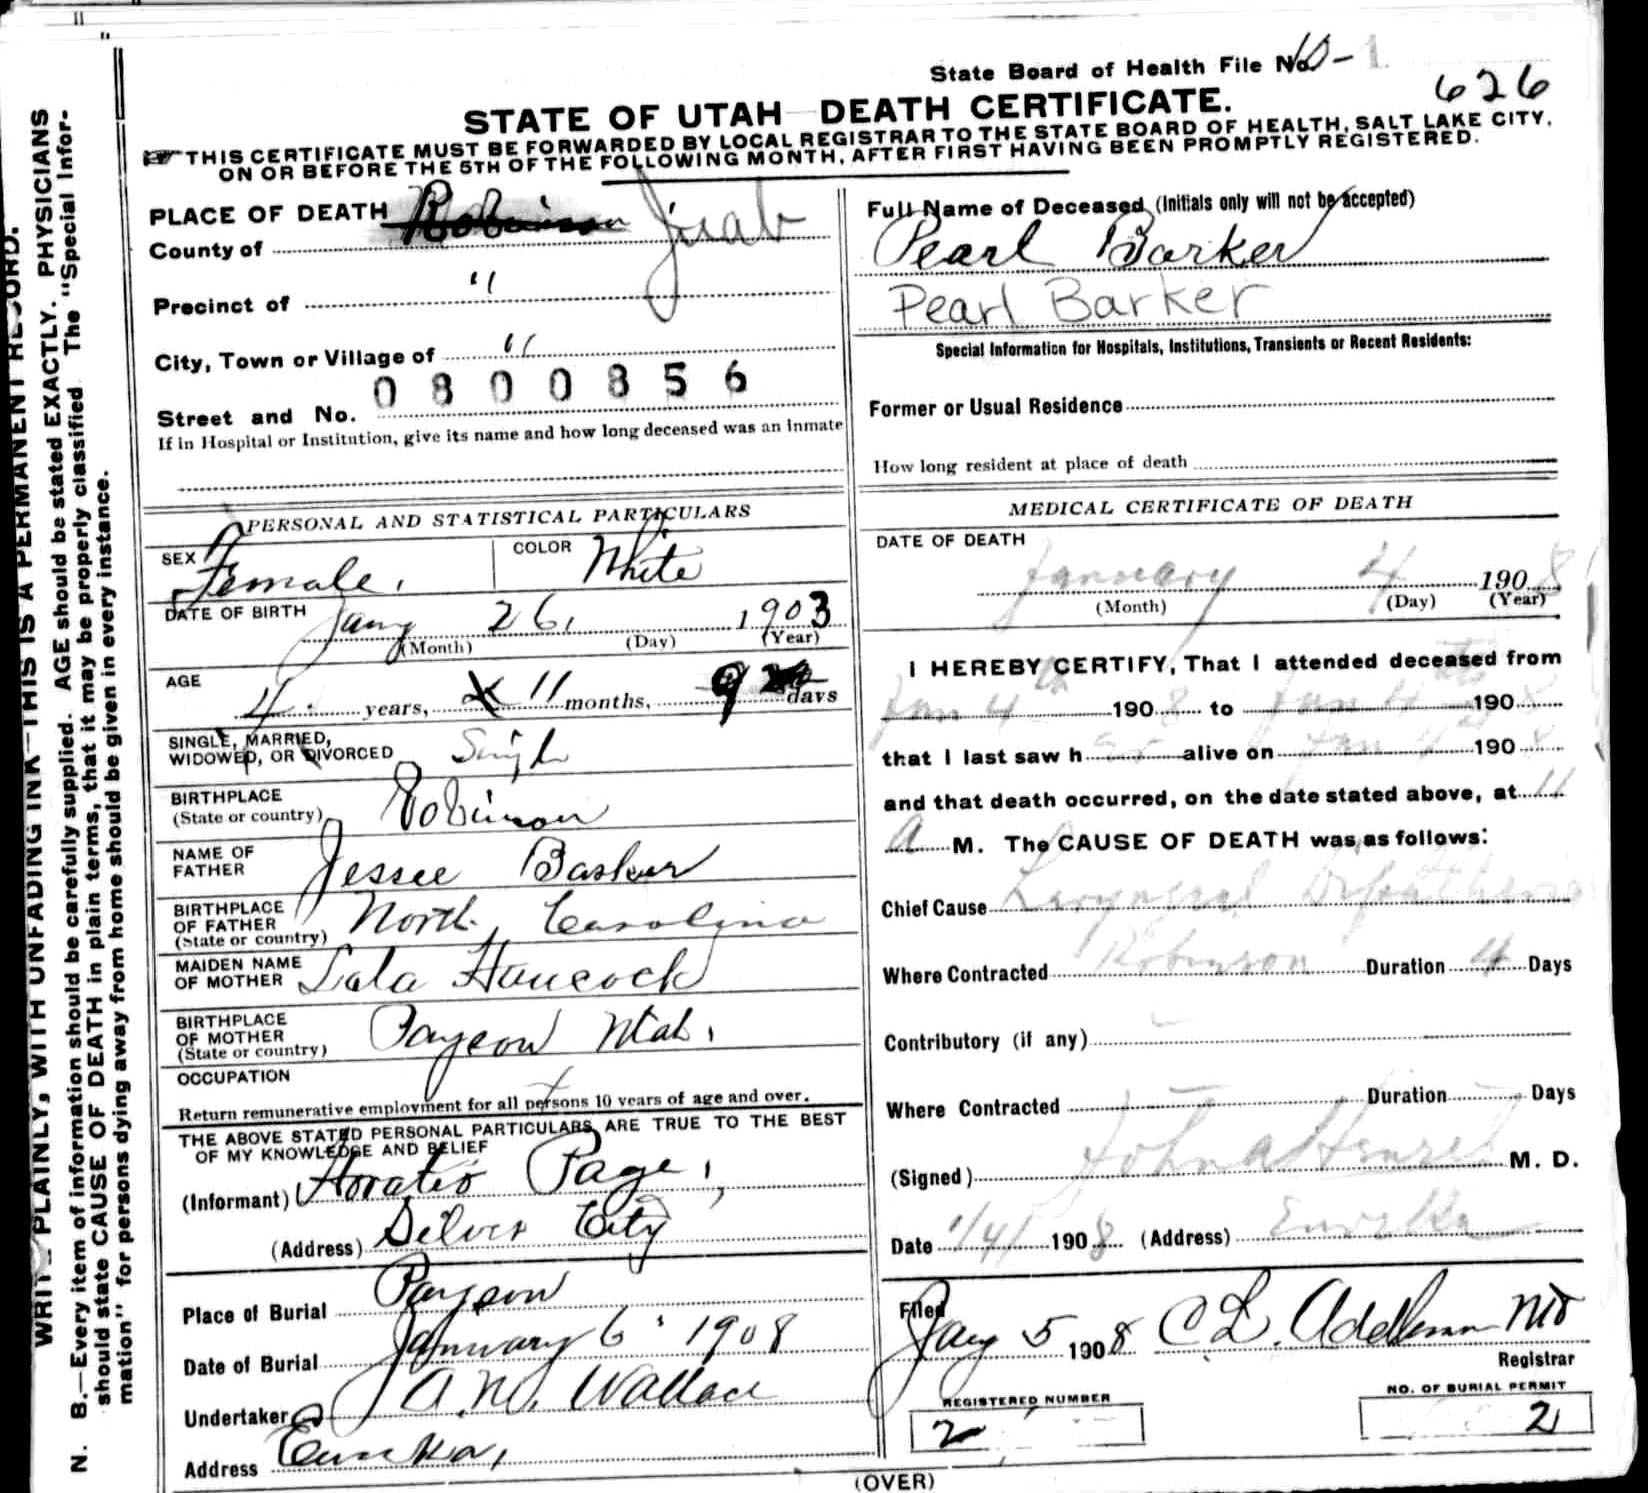 State Board of Health File No. 10-1
626
STATE OF UTAH DEATH CERTIFICATE.
THIS CERTIFICATE MUST BE FORWARDED BY LOCAL REGISTRAR TO THE STATE BOARD OF HEALTH, SALT LAKE CITY,
ON OR BEFORE THE 5TH OF THE FOLLOWING MONTH, AFTER FIRST HAVING BEEN PROMPTLY REGISTERED.
WRITE PLAINLY, WITH UNFADING INK—THIS IS A PERMANENT RECORD.
N. B.—Every item of information should be carefully supplied. AGE should be stated EXACTLY. PHYSICIANS
should state CAUSE OF DEATH in plain terms, that it may be properly classified. The "Special Infor-
mation" for persons dying away from home should be given in every instance.
PLACE OF DEATH
County of Robinson Juab
Precinct of "
City, Town or Village of "
0800856
Street and No.
If in Hospital or Institution, give its name and how long deceased was an inmate
PERSONAL AND STATISTICAL PARTICULARS
SEX Female. COLOR White
DATE OF BIRTH Jany 26, 1903
(Month) (Day) (Year)
AGE 4 years, 11 months, 9 days
SINGLE, MARRIED,
WIDOWED, OR DIVORCED Single
BIRTHPLACE
(State or country) Robinson
NAME OF
FATHER Jessee Barker
BIRTHPLACE
OF FATHER
(State or country) North Carolina
MAIDEN NAME
OF MOTHER Lala Hancock
BIRTHPLACE
OF MOTHER
(State or country) Payson Utah.
OCCUPATION
Return remunerative employment for all persons 10 years of age and over.
THE ABOVE STATED PERSONAL PARTICULARS ARE TRUE TO THE BEST
OF MY KNOWLEDGE AND BELIEF
(Informant) Horatio Page,
(Address) Silver City
Place of Burial Payson
Date of Burial January 6, 1908
Undertaker A.M. Wallace
Address Eureka,
Full Name of Deceased (Initials only will not be accepted)
Pearl Barker
Pearl Barker
Special Information for Hospitals, Institutions, Transients or Recent Residents:
Former or Usual Residence
How long resident at place of death
MEDICAL CERTIFICATE OF DEATH
DATE OF DEATH
January 4 1908
(Month) (Day) (Year)
I HEREBY CERTIFY, That I attended deceased from
Jan 4th 1908 to Jan 4th 1908
that I last saw her alive on Jan 4th 1908
and that death occurred, on the date stated above, at 11
A M. The CAUSE OF DEATH was as follows:
Chief Cause Laryngeal Diphtheria
Where Contracted Robinson Duration 4 Days
Contributory (if any)
Where Contracted Duration Days
(Signed) John A Hensel M. D.
Date 1/4/ 1908 (Address) Eureka
Filed Jany 5 1908 C L. Adelman MD
Registrar
REGISTERED NUMBER
2
NO. OF BURIAL PERMIT
2
(OVER)